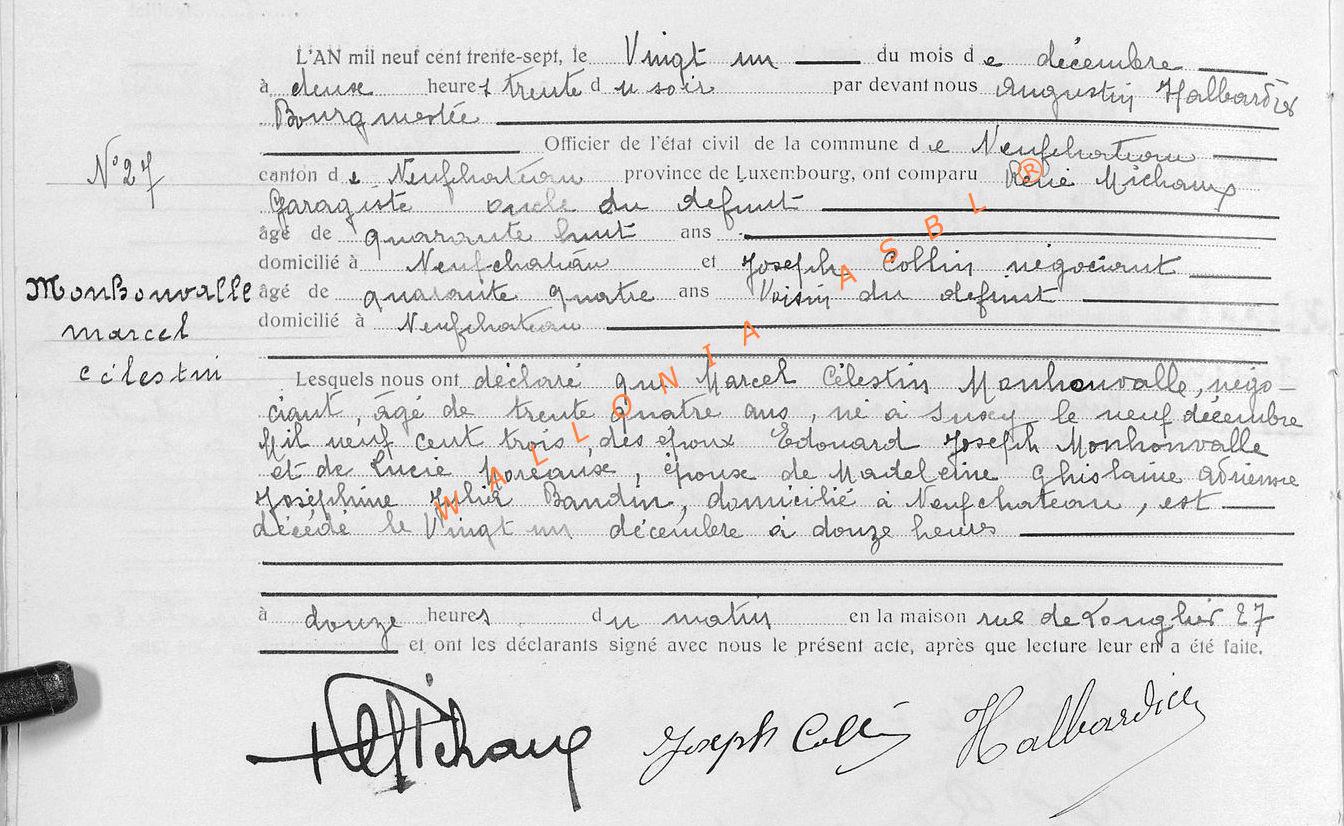 L'AN mil neuf cent trente-sept, le Vingt un du mois de décembre
à deux heures trente du soir par devant nous Augustin Halbardier
Bourgmestre
Officier de l'état civil de la commune de Neufchateau
N° 27
canton de Neufchateau province de Luxembourg, ont comparu René Michaux
Garagiste oncle du defunt
âgé de quarante huit ans
domicilié à Neufchateau et Joseph Collin négociant
Monhonvalle
âgé de quarante quatre ans Voisin du defunt
marcel
domicilié à Neufchateau
célestin
Lesquels nous ont déclaré que Marcel Célestin Monhonvalle, négo-
ciant, âgé de trente quatre ans, né à Suxy le neuf décembre
Mil neuf cent trois, des époux Edouard Joseph Monhonvalle
et de Lucie , époux de Madeleine Ghislaine Adrienne
Joséphine Baudin, domicilié à Neufchateau, est
décédé le Vingt un décembre à douze heures
à douze heures du matin en la maison rue de Longlier 27
et ont les déclarants signé avec nous le présent acte, après que lecture leur en a été faite.
Michaux Joseph Collin Halbardier
WALLONIA ASBL ®